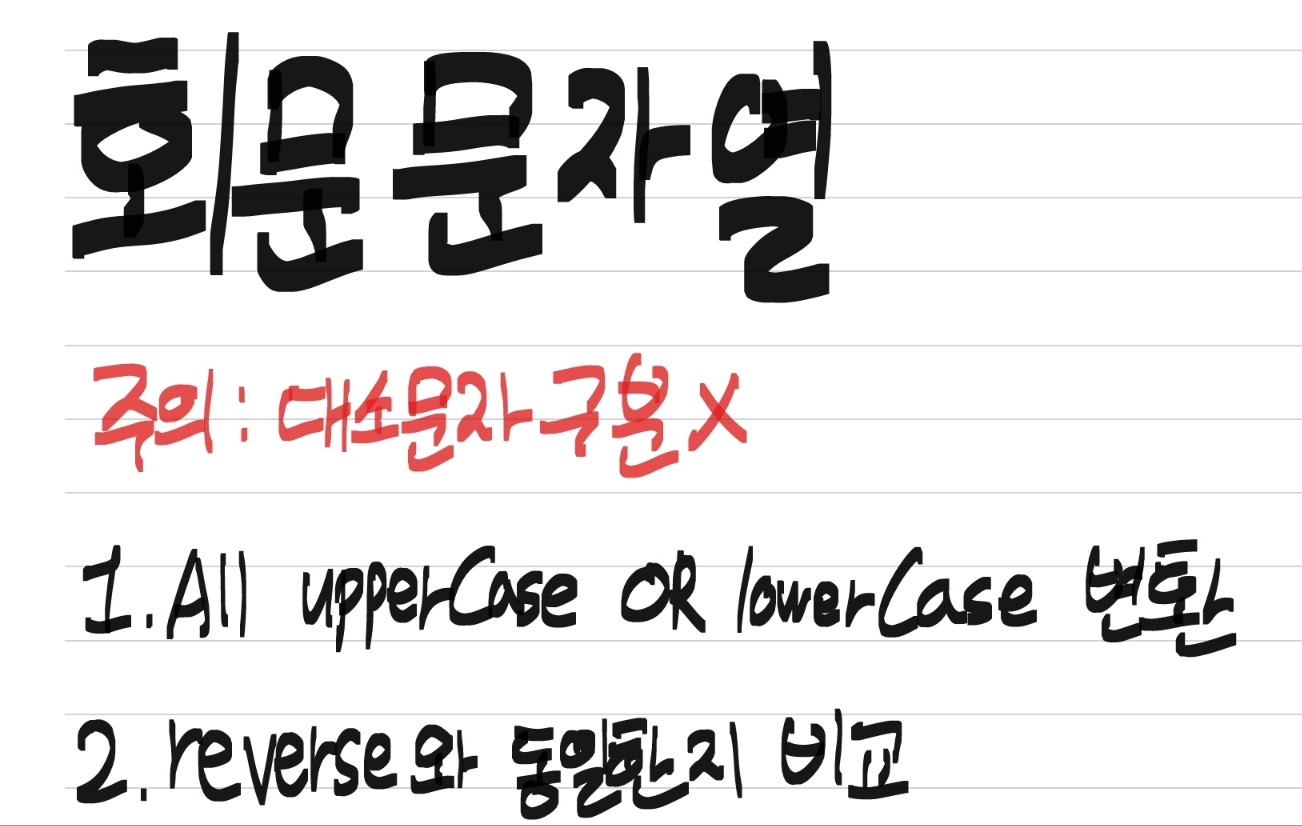 회문문자열
주의 : 대소문자 구분 X
1. All upperCase OR lowerCase 변환
2. reverse와 동일한지 비교